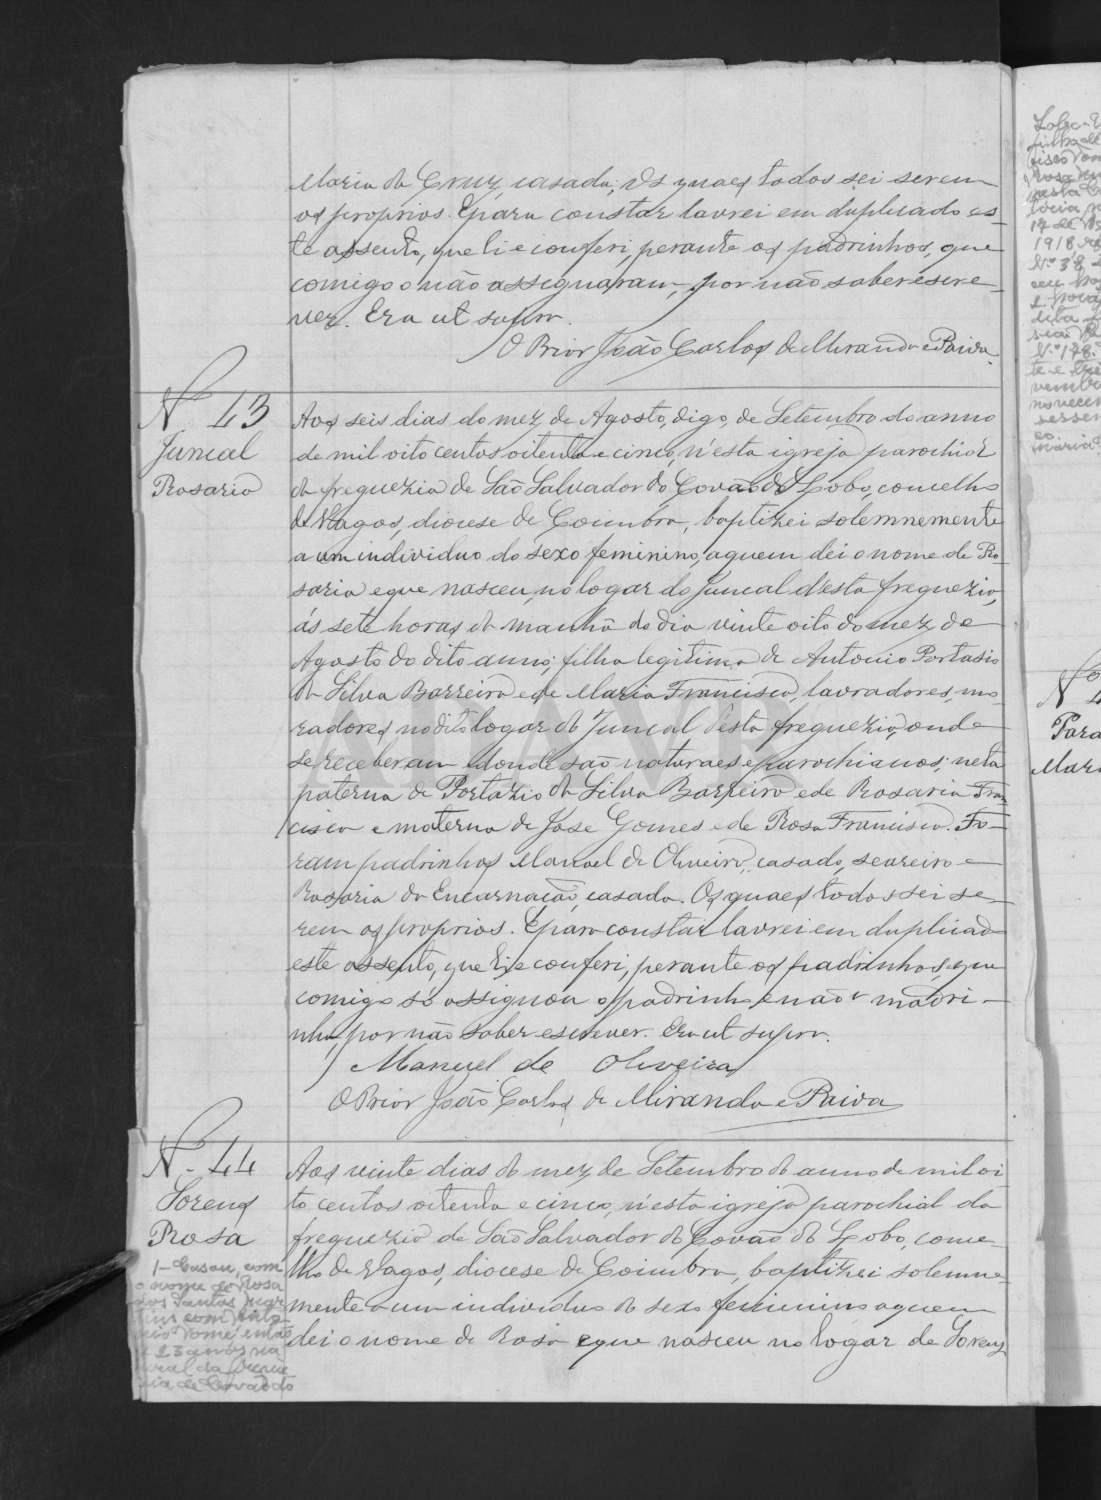 Maria da Cruz, casada; os quaes todos sei serem
os proprios. E para constar lavrei em duplicado es-
te assento, que li e conferi, perante os padrinhos, que
comigo o não assignaram, por não saberescre-
ver. Era ut supra.
O Prior João Carlos de Miranda e Paiva.
Nº 43
Juncal
Rosaria
Aos seis dias do mez de Agosto, digo, de Setembro do anno
de mil oito centos oitenta e cinco, n'esta igreja parochial
da freguezia de São Salvador do Covão do Lobo, concelho
de Vagos, diocese de Coimbra, baptizei solemnemente
a um individuo do sexo feminino, a quem dei o nome de Ro-
saria e que nasceu, no logar do Juncal d'esta freguezia,
ás sete horas da manhã do dia vinte oito do mez de
Agosto do dito anno; filha legitima de Antonio Portasio
da Silva Barreiro e de Maria Francisca, lavradores, mo-
radores no dito logar do Juncal d'esta freguezia, onde
se receberam e donde são naturaes e parochianos; neta
paterna de Portazio da Silva Barreiro e de Rosaria Fran-
cisca e materna de Jose Gomes e de Rosa Francisca. Fo-
ram padrinhos Manoel de Oliveira, casado, seareiro e
Rosaria da Encarnação, casada. Os quaes todos sei se-
rem os proprios. E para constar lavrei em duplicado
este assento, que li e conferi, perante os padrinhos, que
comigo só assignou o padrinho e não a madri-
nha, por não saber escrever. Era ut supra.
Manuel de Oliveira
O Prior João Carlos de Miranda e Paiva
N. 44
Rosa
Aos vinte dias do mez de Setembro do anno de mil oi-
to centos oitenta e cinco, n'esta igreja parochial da
freguezia de São Salvador do Covão do Lobo, conce-
lho de Vagos, diocese de Coimbra, baptizei solemne-
mente a um individuo do sexo feminino a quem
dei o nome de Rosa e que nasceu no logar de
1- Casou, com
o nome de Rosa
dos Santos
com
23 anos na
tural da
cia de Covão do
ADAVR
1918
Nº 38
Nº 178
Nº 4
Maria